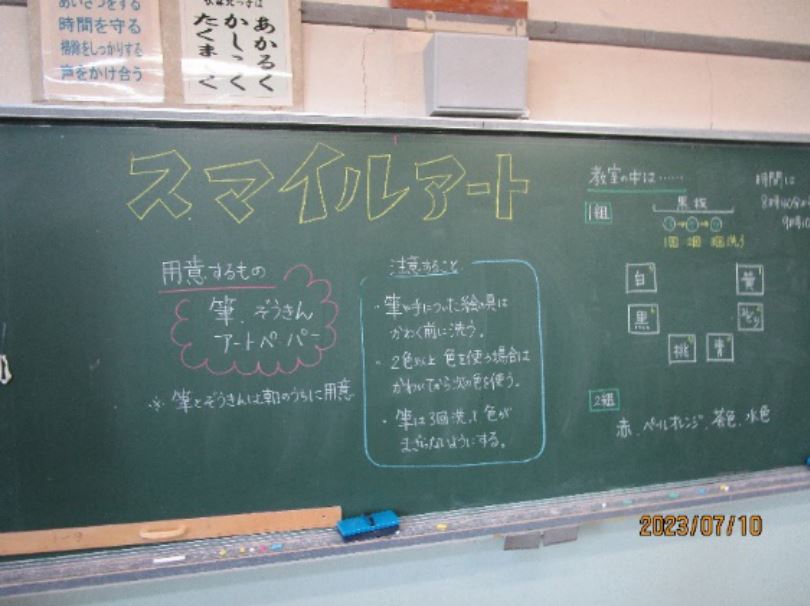 あいさつをする
時間を守る
掃除をしっかりする
声をかけ合う
あかるく
かしこく
たくましく
スマイルアート
用意するもの
筆、ぞうきん
アートペーパー
※ 筆とぞうきんは朝のうちに用意
注意すること
・筆や手についた絵の具は
かわく前に洗う。
・2色以上 色を使う場合は
かわいてから次の色を使う。
・筆は3回洗って色が
まざらないようにする。
教室の中は……
1組
黒板
1回 2回 3回洗う
白
黄
黒
みどり
桃
青
2組
赤、ペールオレンジ、茶色、水色
時間は
8時40分から
2023/07/10